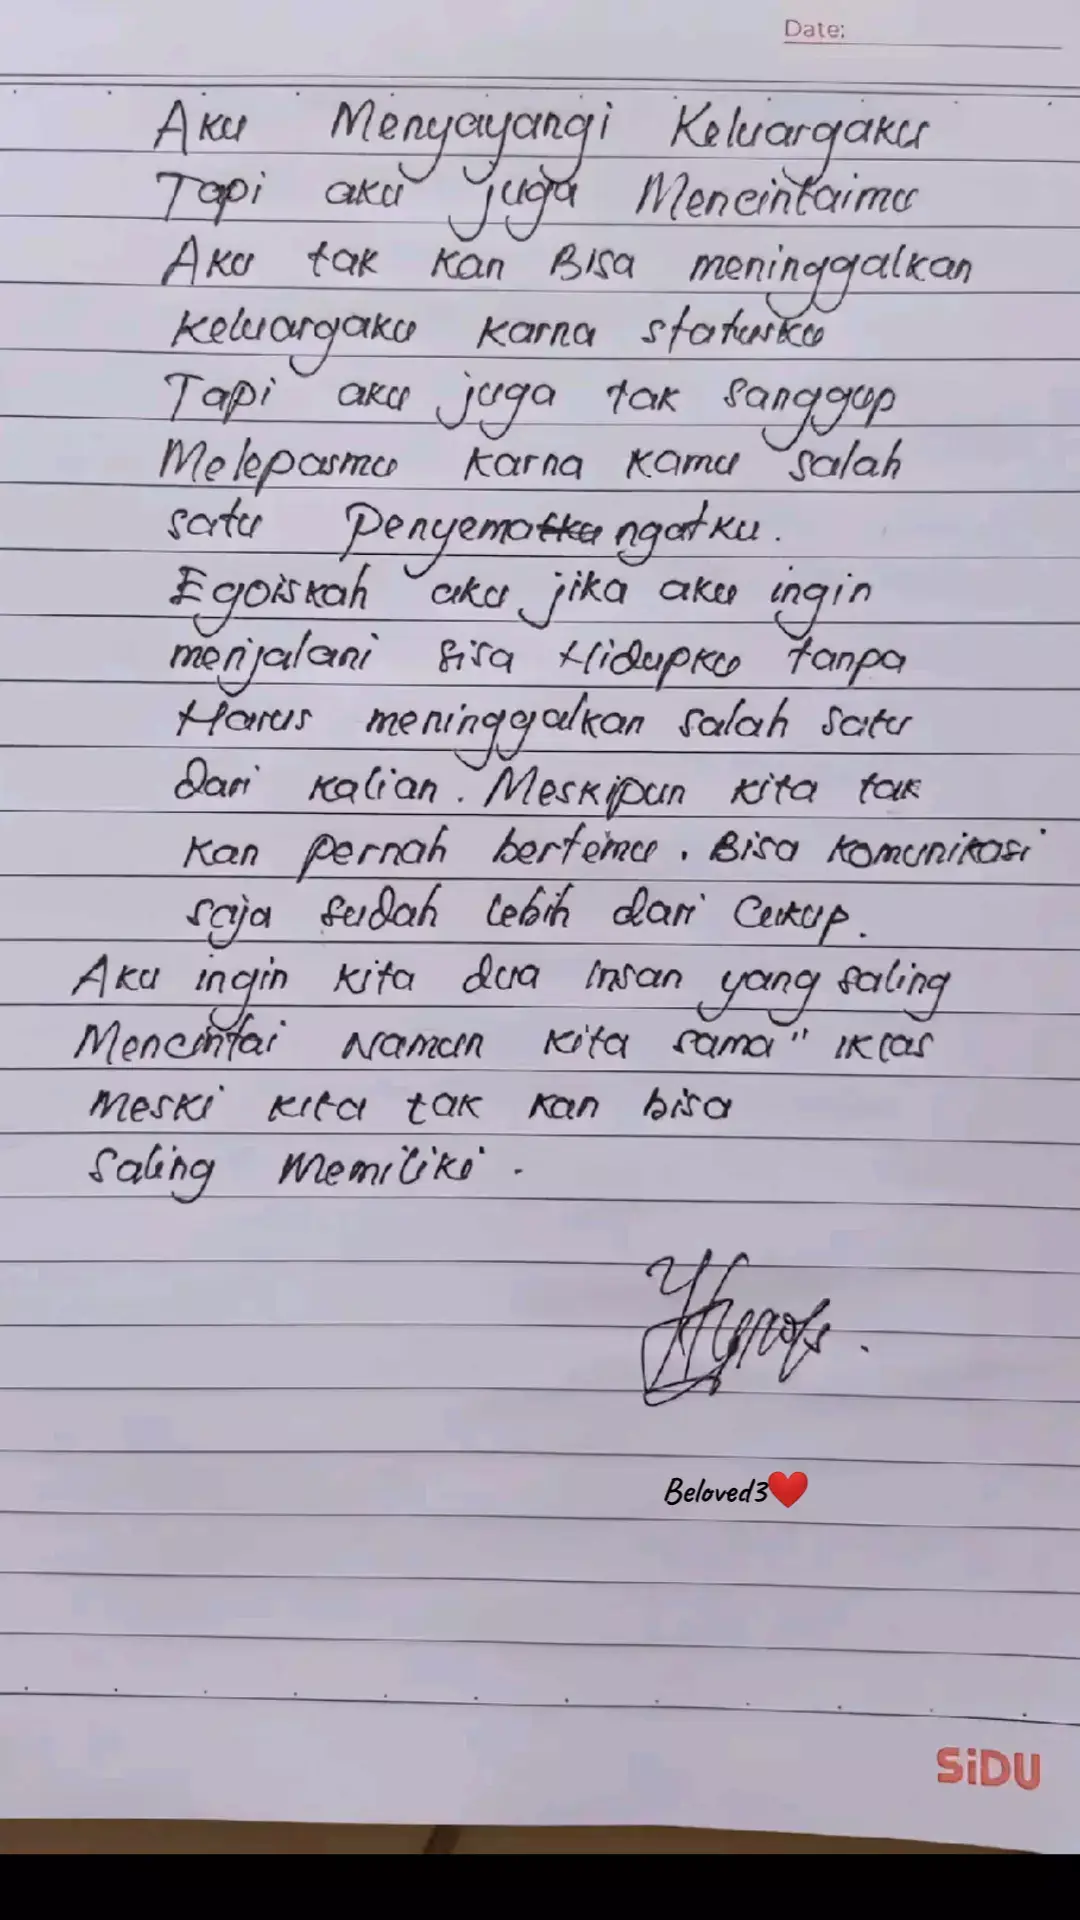 Date:
Aku Menyayangi Keluargaku
Tapi aku juga Mencintaimu
Aku tak kan Bisa meninggalkan
Keluargaku karna statusku
Tapi aku juga tak sanggup
Melepasmu karna kamu salah
satu Penyemangatku.
Egoiskah aku jika aku ingin
menjalani sisa Hidupku tanpa
Harus meninggalkan salah satu
dari kalian. Meskipun kita tak
kan pernah bertemu. Bisa komunikasi
saja sudah lebih dari Cukup.
Aku ingin kita dua insan yang saling
Mencintai Namun kita sama" iklas
Meski kita tak kan bisa
Saling Memiliki.
Beloved3❤️
SiDU